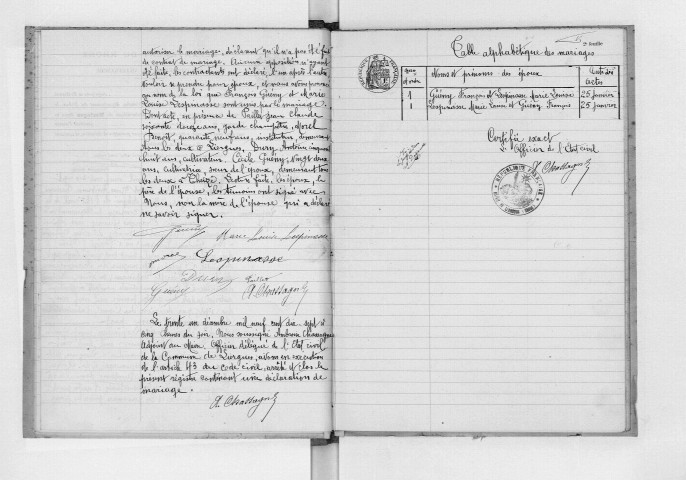 autoriser le mariage, déclarant qu'il n'a pas été fait
de contrat de mariage. Aucune opposition n'ayant
été faite, les contractants ont déclaré l'un après l'autre
vouloir se prendre pour époux, et nous avons prononcé
au nom de la loi que François Guény et Marie
Louise Lespinasse sont unis par le mariage.
Dont acte, en présence de Jean Claude
soixante deux ans, garde champêtre, Morel
Benoît, quarante neuf ans, instituteur, demeurant
tous les deux à Lurgues, Antoine cinquante
huit ans, cultivateur, Cécile Guény, vingt deux
ans, cultivatrice, sœur de l'époux, demeurant tous
les deux à. Lecture faite, les époux, le
père de l'épouse, les témoins ont signé avec
Nous, non la mère de l'épouse qui a déclaré
ne savoir signer.
Marie Louise Lespinasse
Lespinasse
A. Chassagne
Le trente un décembre mil neuf cent dix sept à
cinq heures du soir, Nous soussigné
Adjoint au Maire Officier délégué de l'Etat civil
de la Commune de Lurgues, avons en exécution
de l'article 43 du code civil, arrêté et clos le
présent registre contenant une déclaration de
mariage.
A. Chassagne
Table alphabétique des mariages
Nos d'ordre Noms et prénoms des époux Date des actes
1 Guény François et Lespinasse Marie Louise 25 janvier
1 Lespinasse Marie Louise et Guény François 25 janvier
Certifié exact
L'Officier de l'Etat civil
A. Chassagne
REPUBLIQUE FRANÇAISE